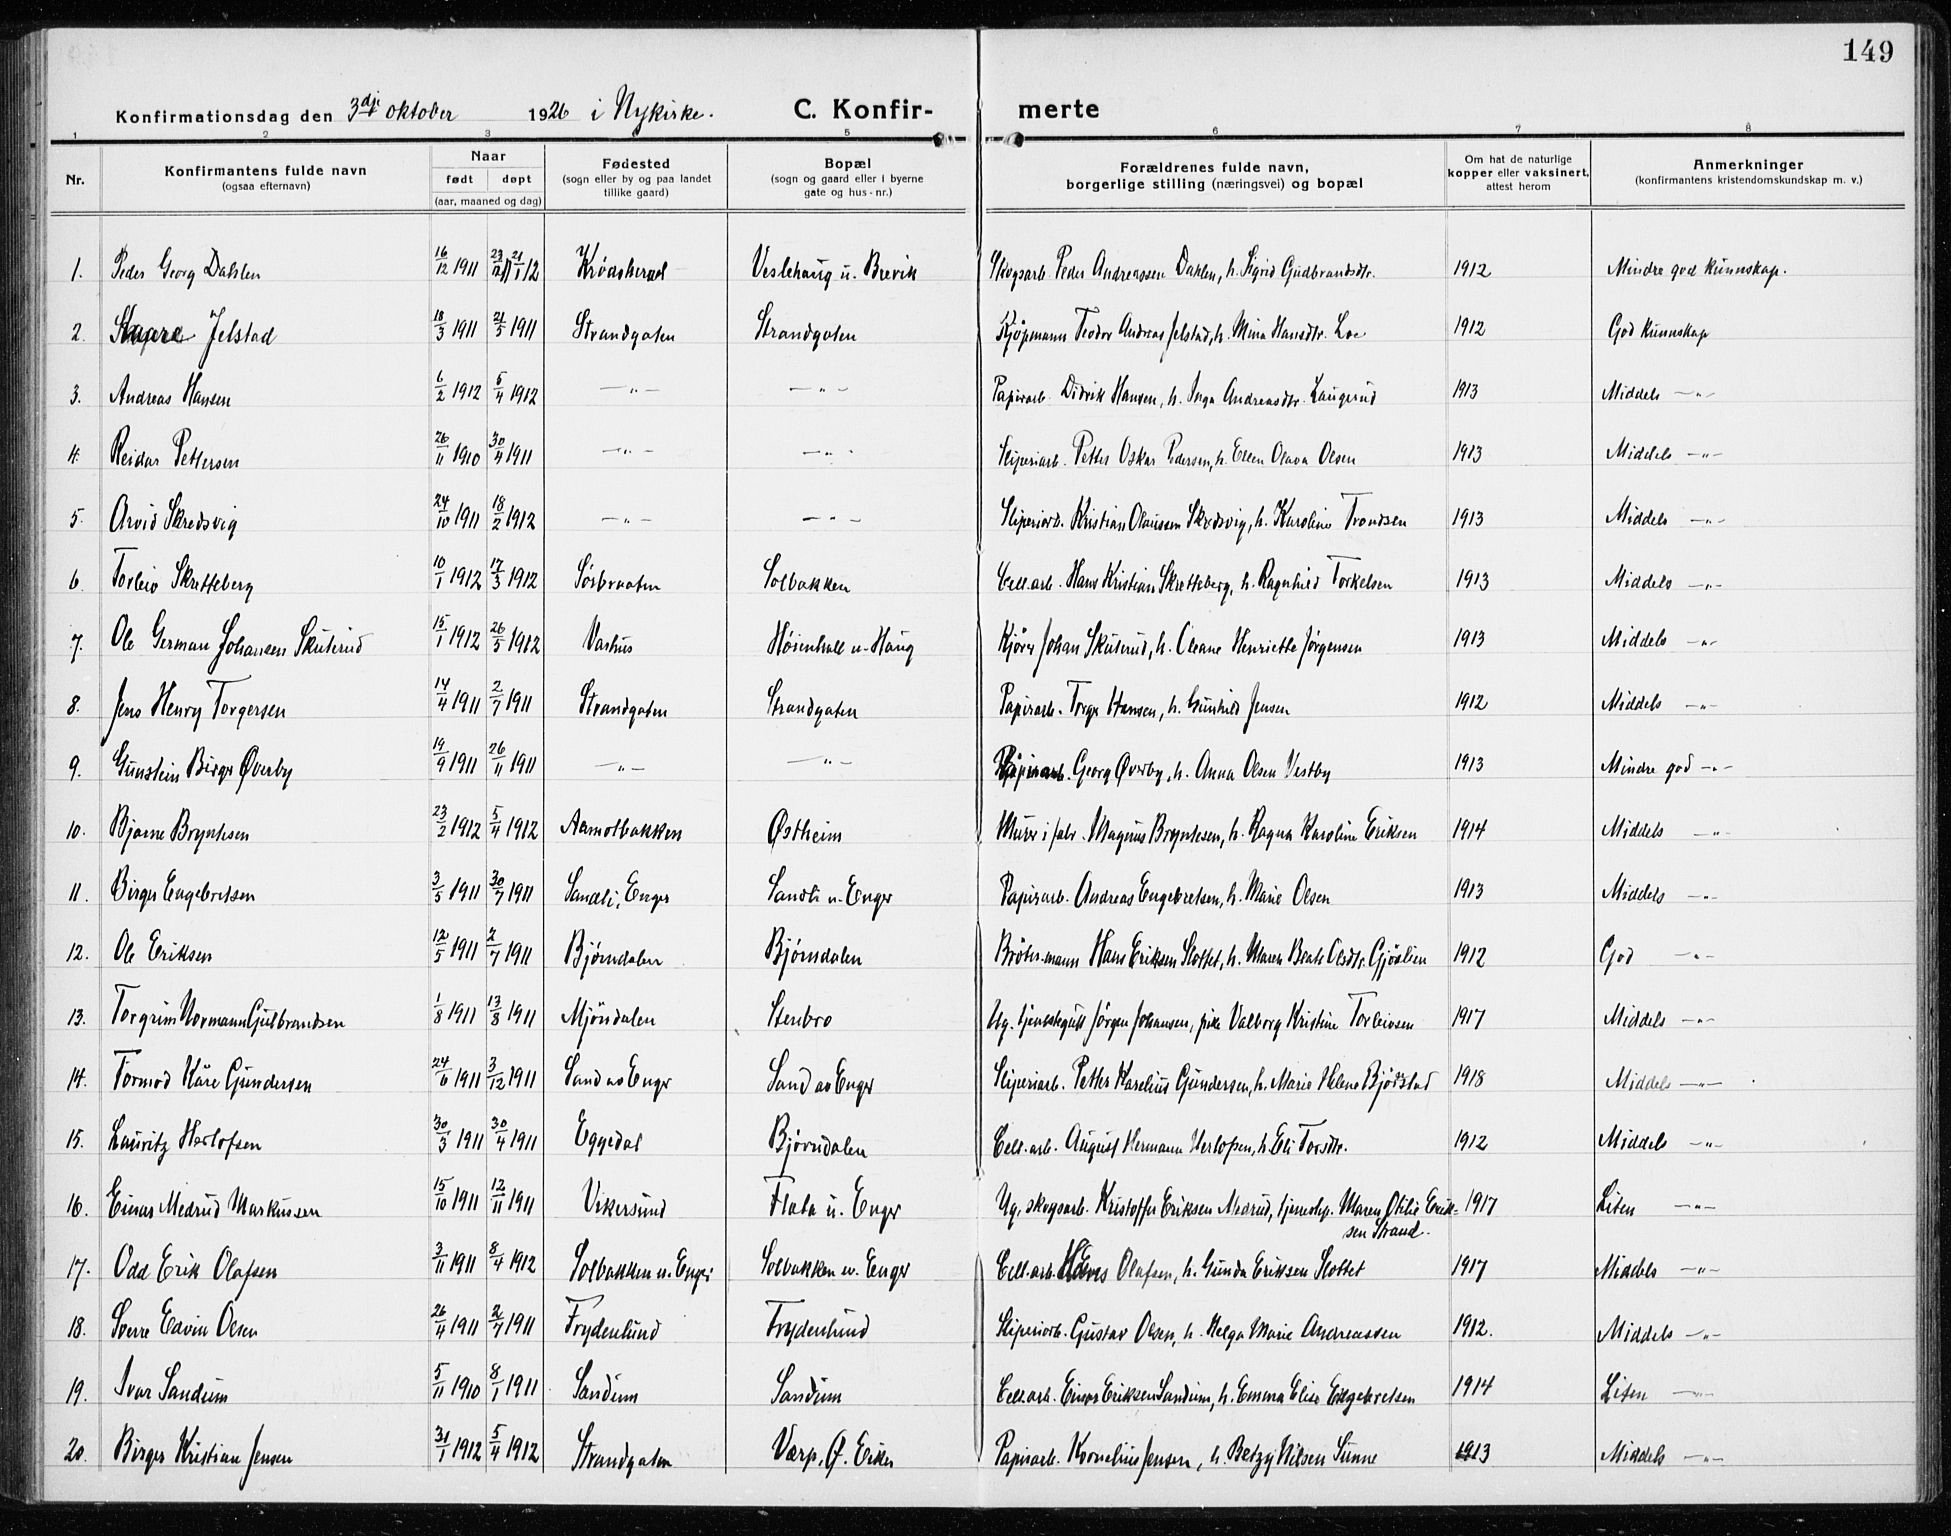 149
Konfirmationsdag den 3dje oktober 1926 i Nykirke. C. Konfir- merte
1 2 3 4 5 6 7 8
Nr. Konfirmantens fulde navn (ogsaa efternavn) Naar født døpt (aar, maaned og dag) Fødested (sogn eller by og paa landet tillike gaard) Bopæl (sogn og gaard eller i byerne gate og hus-nr.) Forældrenes fulde navn, borgerlige stilling (næringsvei) og bopæl Om hat de naturlige kopper eller vaksinert, attest herom Anmerkninger (konfirmantens kristendomskundskap m. v.)
1. Peder Georg Dahlen 16/12 1911 21/1 12 Krødsherad Veslehaug u. Brevik Skogsarb. Peder Andreassen Dahlen, h. Sigrid Gudbrandsdtr. 1912 Mindre god kunnskap.
2. Jelstad 18/3 1911 21/5 1911 Strandgaten Strandgaten Kjøpmann Teodor Andreas Jelstad, h. Mina Hansdtr. Loe 1912 God kunnskap
3. Andreas Hansen 6/2 1912 5/4 1912 —"— —"— Papirarb. Didrik Hansen, h. Inga Andreasdtr. Laugerud 1913 Middels —"—
4. Reidar Pettersen 26/11 1910 30/4 1911 —"— —"— Sliperiarb. Petter Oskar Pedersen, h. Ellen Olava Olsen 1913 Middels —"—
5. Arvid Skredsvig 24/10 1911 18/2 1912 —"— —"— Sliperiarb. Kristian Olaussen Skredsvig, h. Karoline Trondsen 1913 Middels —"—
6. Torleiv Skretteberg 10/1 1912 17/3 1912 Sørbraaten Solbakken Cell.arb. Hans Kristian Skretteberg, h. Ragnhild Torkelsen 1913 Middels —"—
7. Ole German Johansen Skuterud 15/1 1912 26/5 1912 Vashus Høienhall u. Haug Kjører Johan Skuterud, h. Oleane Henriette Jørgensen 1913 Middels —"—
8. Jens Henry Torgersen 14/4 1911 2/7 1911 Strandgaten Strandgaten Papirarb. Torger Hansen, h. Gunhild Jensen 1912 Middels —"—
9. Gunstein Birger Øverby 19/9 1911 26/11 1911 —"— —"— Papirarb. Georg Øverby, h. Anna Olsen Vestby 1913 Mindre god —"—
10. Bjarne Bryntesen 23/2 1912 5/4 1912 Aamotbakken Østheim Murer i fabr. Magnus Bryntesen, h. Ragna Karoline Eriksen 1914 Middels —"—
11. Birger Engebretsen 3/5 1911 30/7 1911 Sandli, Enger Sandli u. Enger Papirarb. Andreas Engebretsen, h. Marie Olsen 1913 Middels —"—
12. Ole Eriksen 12/5 1911 2/7 1911 Bjørndalen Bjørndalen Hans Eriksen Slottet, h. Maren Beate Olsdtr. Gjøslien 1912 God —"—
13. Torgrim Normann Gulbrandsen 1/8 1911 13/8 1911 Mjöndalen Stenbro Ug. tjenestegutt Jörgen Johansen, pike Valborg Kristine Torleivsen 1917 Middels —"—
14. Tormod Kåre Gundersen 24/6 1911 3/12 1911 Sand av Enger Sand av Enger Sliperiarb. Petter Karelius Gundersen, h. Marie Helene Bjødstad 1918 Middels —"—
15. Lauritz Herlofsen 30/3 1911 30/4 1911 Eggedal Bjørndalen Cell.arb. August Hermann Herlofsen, h. Eli Torsdtr. 1912 Middels —"—
16. Einar Medrud Markussen 15/10 1911 12/11 1911 Vikersund Flata u. Enger Ug. skogsarb. Kristoffer Eriksen Medrud, tjenestep. Maren Otilie Erik- 1917 Liten —"—
sen Strand.
17. Odd Erik Olafsen 3/11 1911 8/4 1912 Solbakken u. Enger Solbakken u. Enger Cell.arb. Olafsen, h. Gunda Eriksen Slottet 1917 Middels —"—
18. Sverre Edvin Olsen 26/4 1911 2/7 1911 Frydenlund Frydenlund Sliperiarb. Gustav Olsen, h. Helga Marie Andreassen 1912. Middels —"—
19. Ivar Sandum 5/11 1910 8/1 1911 Sandum Sandum Cell.arb. Einar Eriksen Sandum, h. Emma Elise Engebretsen 1914 Liten —"—
20. Birger Kristian Jensen 31/1 1912 5/4 1912 Strandgaten Værp, Ø. Eiker Papirarb. Kornelius Jensen, h. Betzy Nilsen Sunne 1913 Middels —"—